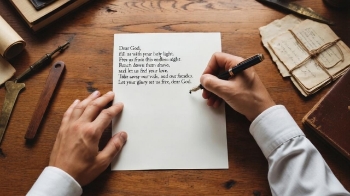 Dear God,
fill us with your holy light.
Free us from this endless night.
Reach down from above,
and let us feel your love.
Take away our walls, and our heads.
Let your glory set us free, dear God.